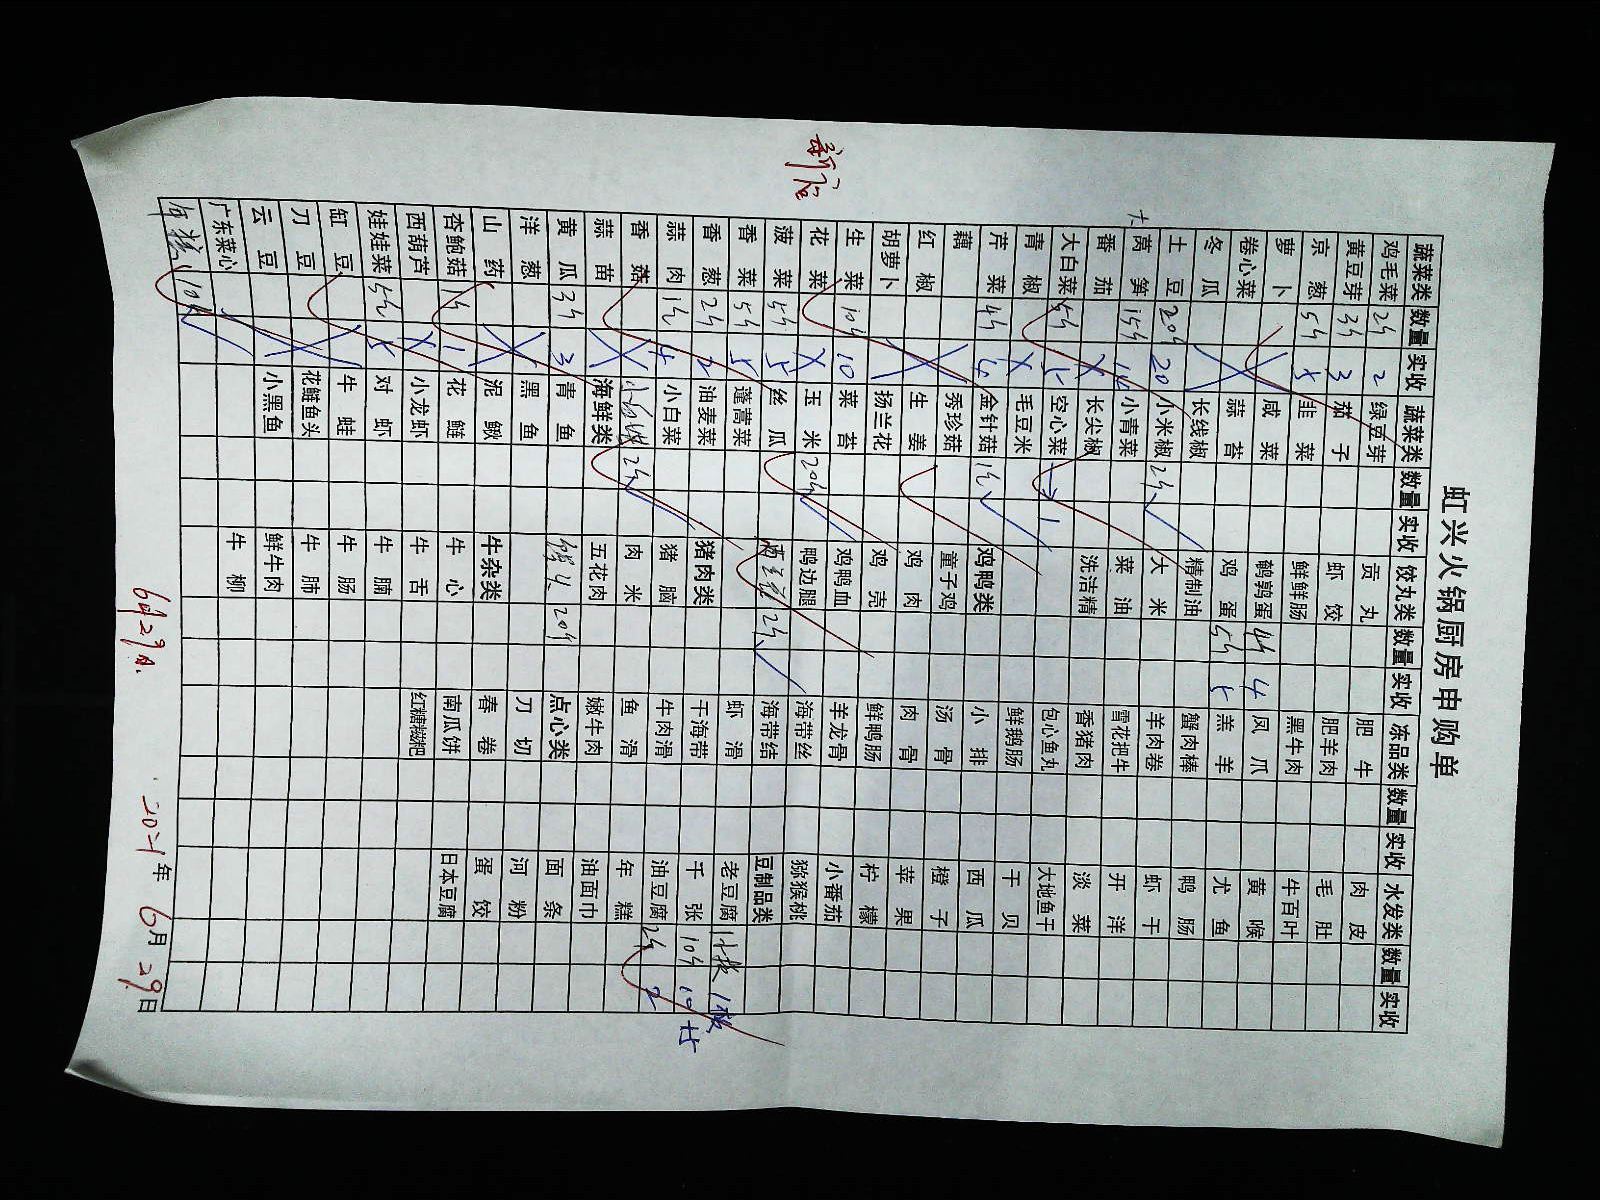 虹兴火锅厨房申购单
新店
蔬菜类 数量 实收 蔬菜类 数量 实收 饺丸类 数量 实收 冻品类 数量 实收 水发类 数量 实收
鸡毛菜 2斤 2 绿豆芽 贡丸 肥牛 肉皮
黄豆芽 3斤 3 茄子 虾饺 肥羊肉 毛肚
京葱 5斤 韭菜 鲜鲜肠 黑牛肉 牛百叶
萝卜 咸菜 鹌鹑蛋 4斤 4 凤爪 黄喉
卷心菜 蒜苔 鸡蛋 5斤 5 羔羊 尤鱼
冬瓜 长线椒 精制油 蟹肉棒 鸭肠
土豆 20斤 20 小米椒 2斤 大米 羊肉卷 虾干
大 莴笋 15斤 小青菜 菜油 雪花把牛 开洋
番茄 长尖椒 洗洁精 香猪肉 淡菜
大白菜 5斤 5 空心菜 1 包心鱼丸 大地鱼干
青椒 毛豆米 鲜鹅肠 干贝
芹菜 4斤 4 金针菇 1斤 鸡鸭类 小排 西瓜
藕 秀珍菇 童子鸡 汤骨 橙子
红椒 生姜 鸡肉 肉骨 苹果
胡萝卜 扬兰花 鸡壳 鲜鸭肠 柠檬
生菜 10斤 10 菜苔 鸡鸭血 羊龙骨 小番茄
花菜 玉米 20斤 鸭边腿 海带丝 猕猴桃
菠菜 5斤 5 丝瓜 2斤 海带结 豆制品类
香菜 5斤 5 蓬蒿菜 虾滑 老豆腐 1板 1板
香葱 2斤 2 油麦菜 猪肉类 干海带 千张 10斤 10
蒜肉 1斤 小白菜 猪脑 牛肉滑 油豆腐 2斤 2
香菇 2斤 肉米 鱼滑 年糕
蒜苗 海鲜类 五花肉 嫩牛肉 油面巾
黄瓜 3斤 3 青鱼 20斤 点心类 面条
洋葱 黑鱼 刀切 河粉
山药 泥鳅 牛杂类 春卷 蛋饺
杏鲍菇 1斤 1 花鲢 牛心 南瓜饼 日本豆腐
西葫芦 小龙虾 牛舌 红糖糍粑
娃娃菜 5斤 5 对虾 牛腩
缸豆 牛蛙 牛肠
刀豆 花鲢鱼头 牛肺
云豆 小黑鱼 鲜牛肉
广东菜心 牛柳
年糕 10斤
6月29日.
2021年6月29日